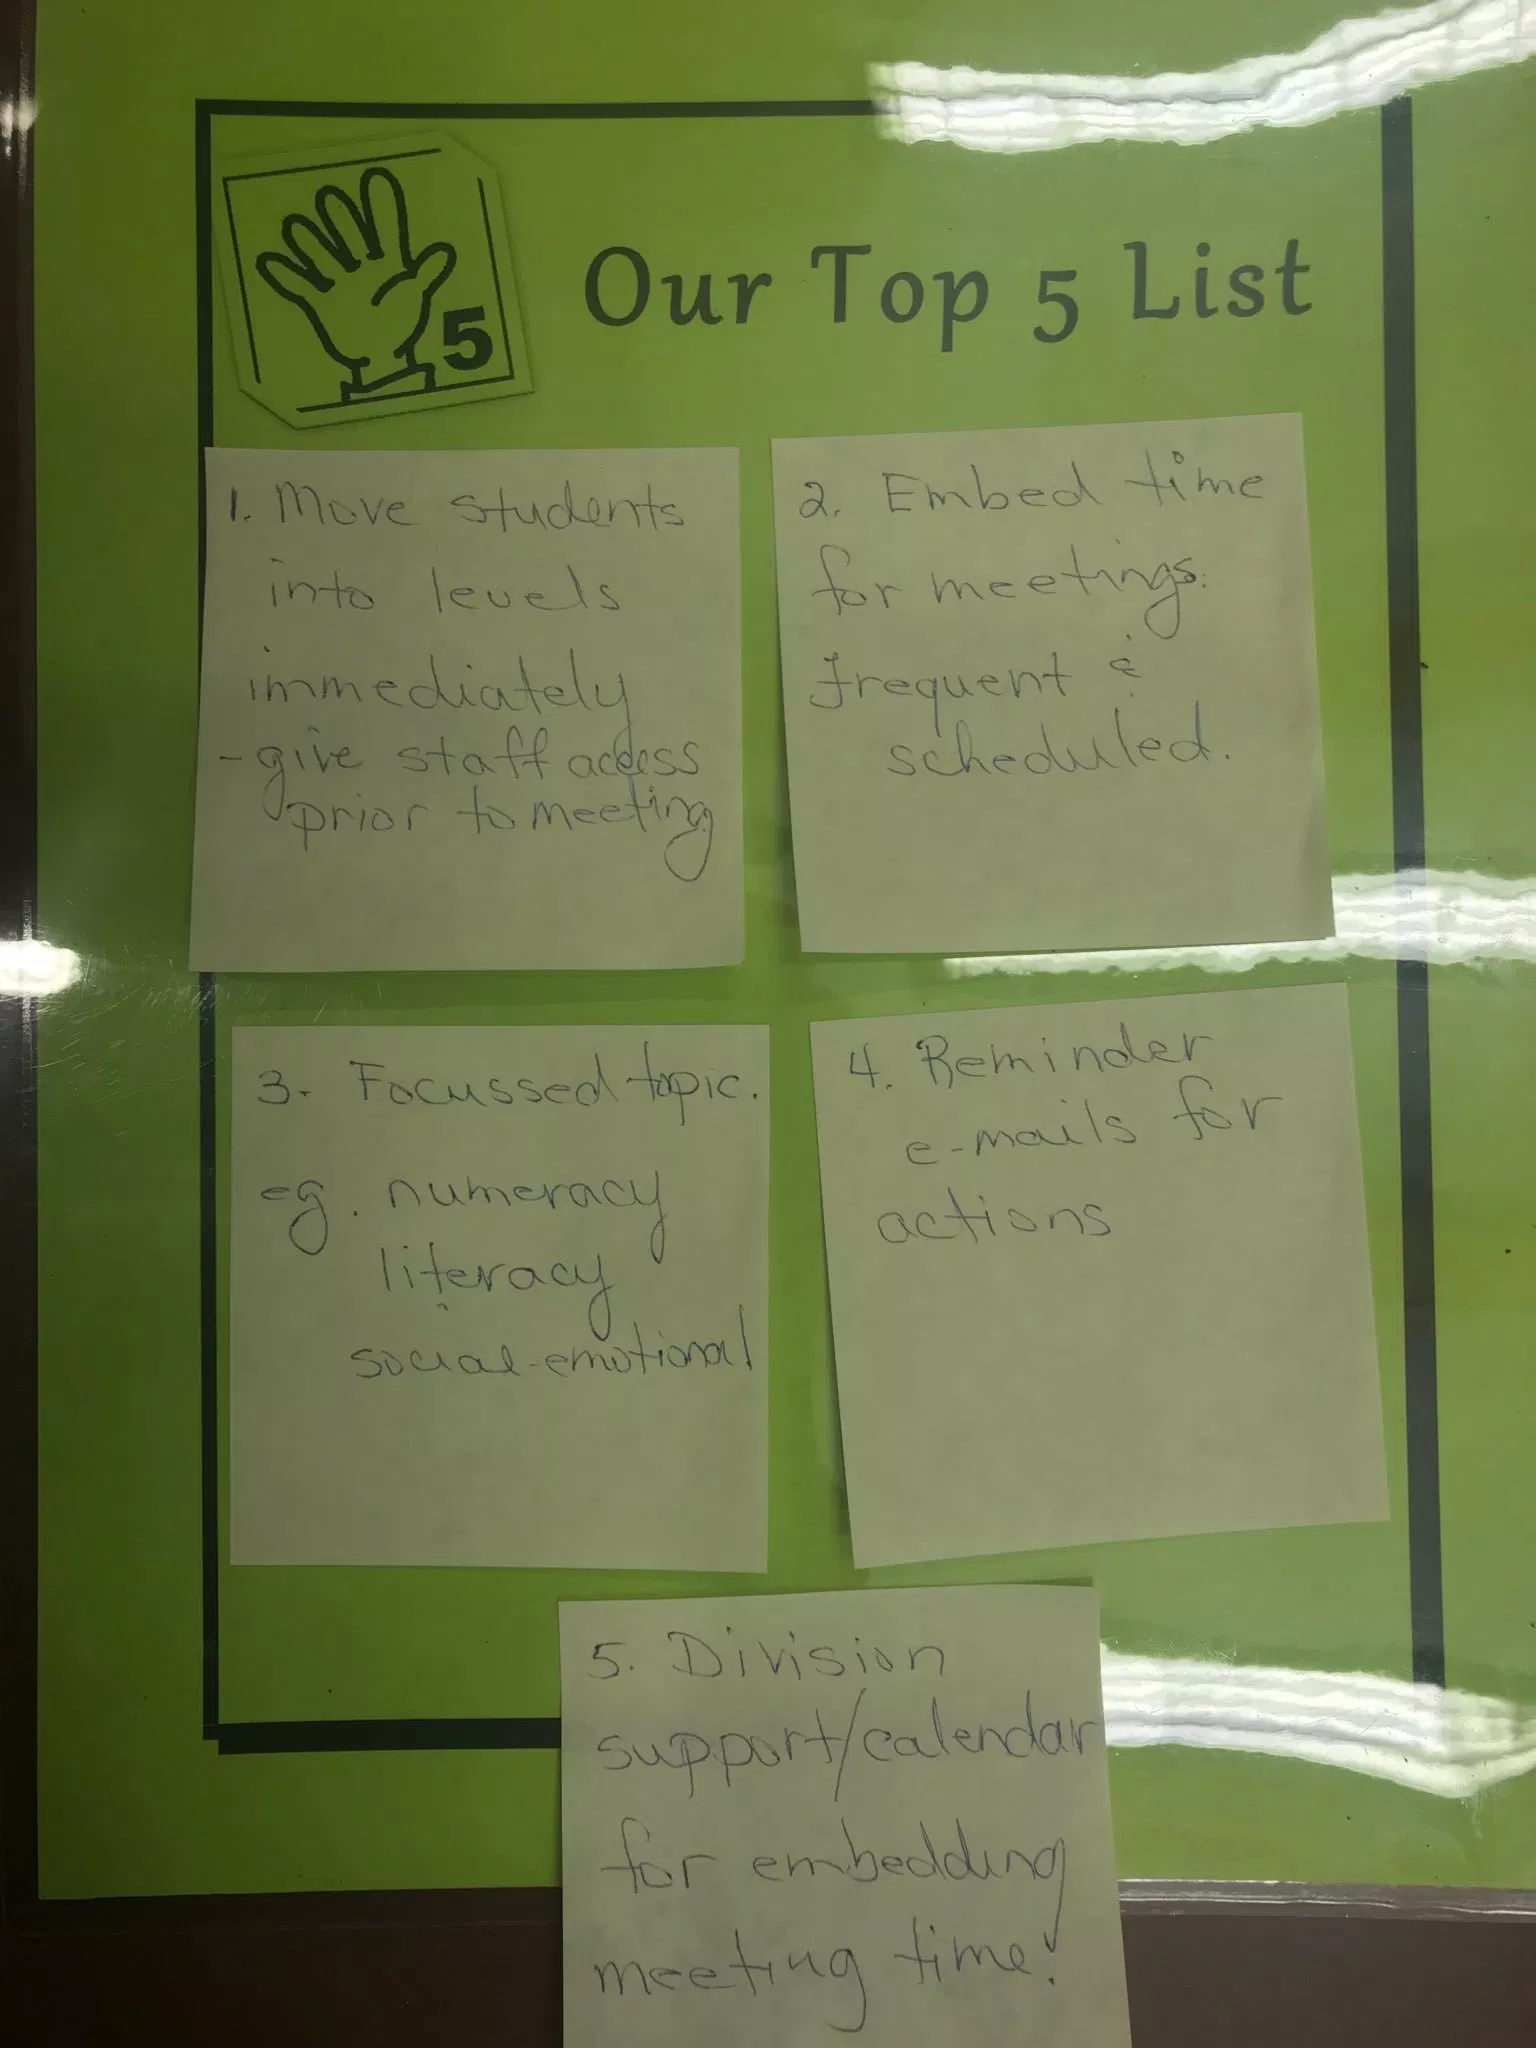 5
Our Top 5 List
1. Move students
into levels
immediately
- give staff access
prior to meeting
2. Embed time
for meetings.
frequent &
scheduled.
3. Focussed topic.
eg. numeracy
literacy
social-emotional
4. Reminder
e-mails for
actions
5. Division
support/calendar
for embedding
meeting time!